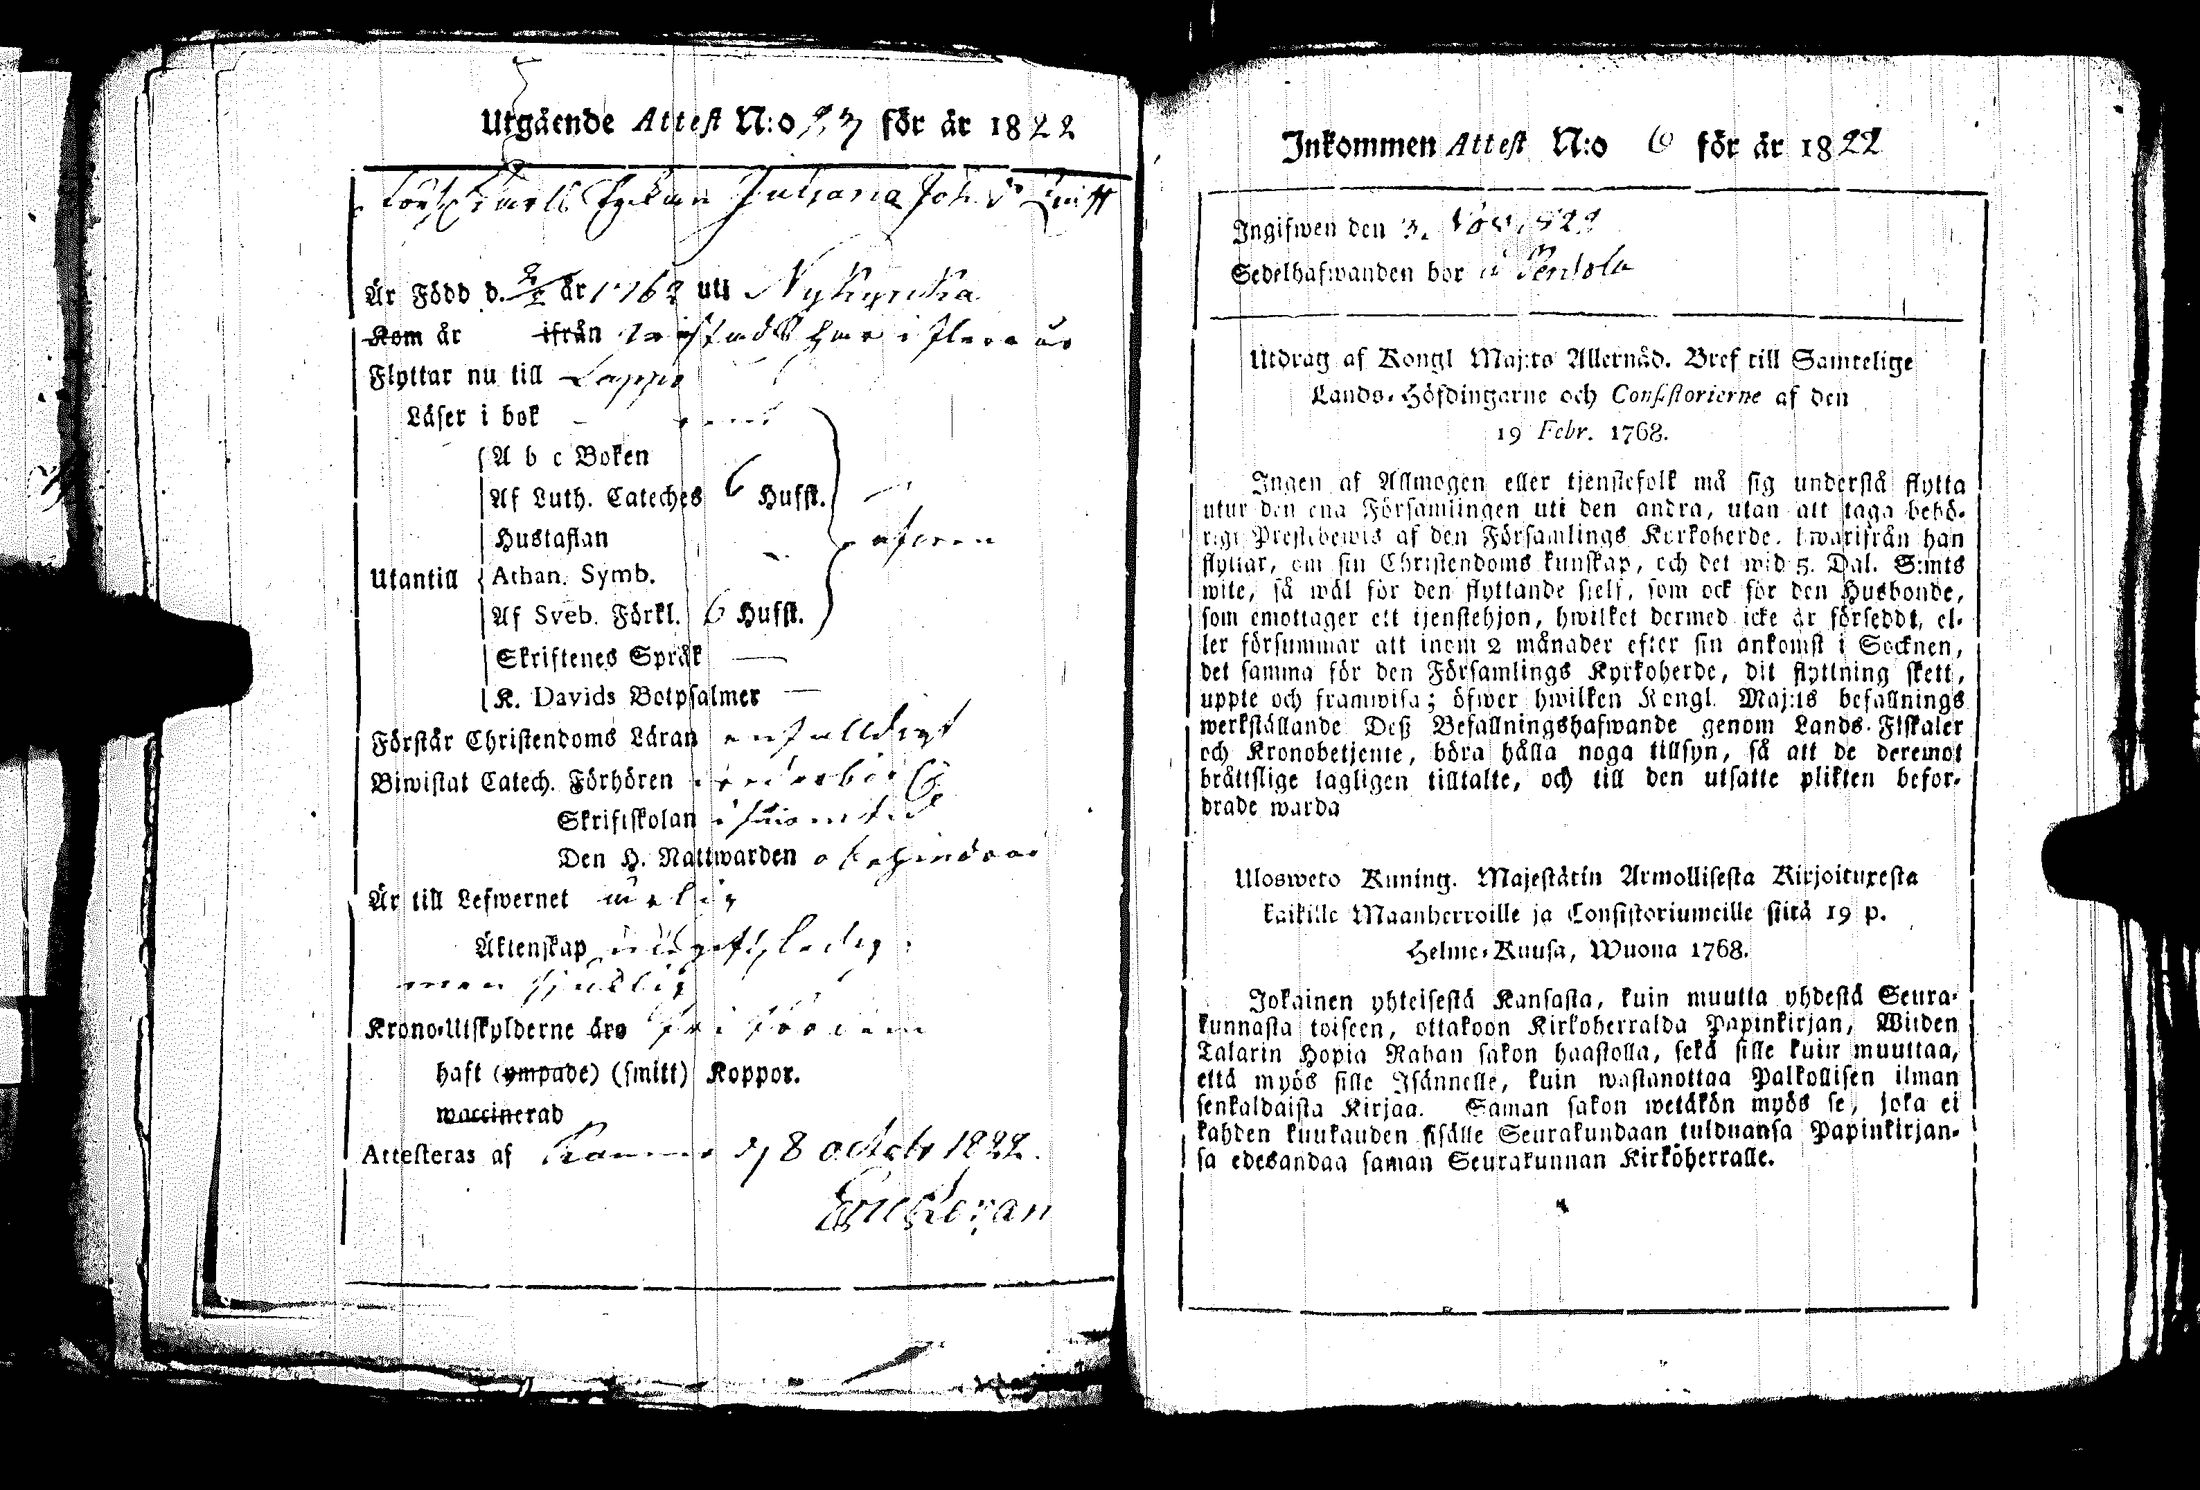 Utgående Attest N:o 23 för år 1822
Juliana Joh. Dr
Är Född d. år 1762 uti Nykyrcka
Kom år ifrån har i flera år
Flyttar nu till Lappo
Läser i bok
A b c Boken
Af Luth. Cateches 6 Hufst.
Hustaflan
Utantill Athan. Symb.
Af Sveb. Förkl. 6 Hufst.
Skriftenes Språk —
K. Davids Botpsalmer —
Förstår Christendoms Läran enfalldigt
Biwistat Catech. Förhören
Skriftskolan
Den H. Nattwarden obehindrad
Är till Lefwernet ärlig
Äktenskap ledig
men sjuklig
Krono-Utskylderne äro fri för dem
haft (ympade) (smitt) Koppor.
waccinerad
Attesteras af d 8 octobr 1822.
Eric
Inkommen Attest N:o 6 för år 1822
Ingifwen den 3. Nov. 1822
Sedelhafwanden bor i Pentola
Utdrag af Kongl Maj:ts Allernåd. Bref till Samtelige
Lands-Höfdingarne och Consistorierne af den
19 Febr. 1768.
Ingen af Allmogen eller tjenstefolk må sig understå flytta
utur den ena Församlingen uti den andra, utan att taga behö-
rigt Prestebewis af den Församlings Kyrkoherde, hwarifrån han
flyttar, om sin Christendoms kunskap, och det wid 5. Dal. S:mts
wite, så wäl för den flyttande sjelf, som ock för den Husbonde,
som emottager ett tjenstehjon, hwilket dermed icke är försedt, el-
ler försummar att inom 2 månader efter sin ankomst i Socknen,
det samma för den Församlings Kyrkoherde, dit flyttning skett,
uppte och framwisa; öfwer hwilken Kongl. Maj:ts befallnings
werkställande Deß Befallningshafwande genom Lands-Fiskaler
och Kronobetjente, böra hålla noga tillsyn, så att de deremot
bråttslige lagligen tilltalte, och till den utsatte plikten befor-
drade warda
Ulosweto Kuning. Majestätin Armollisesta Kirjoituxesta
kaikille Maanherroille ja Consistoriumeille siitä 19 p.
Helme-Kuusa, Wuona 1768.
Jokainen yhteisestä Kansasta, kuin muutta yhdestä Seura-
kunnasta toiseen, ottakoon Kirkoherralda Papinkirjan, Wiiden
Talarin Hopia Rahan sakon haastolla, sekä sille kuin muuttaa,
että myös sille Isännelle, kuin wastanottaa Palkollisen ilman
senkaldaista Kirjaa. Saman sakon wetäkön myös se, joka ei
kahden kuukauden sisälle Seurakundaan tulduansa Papinkirjan-
sa edesandaa saman Seurakunnan Kirkoherralle.